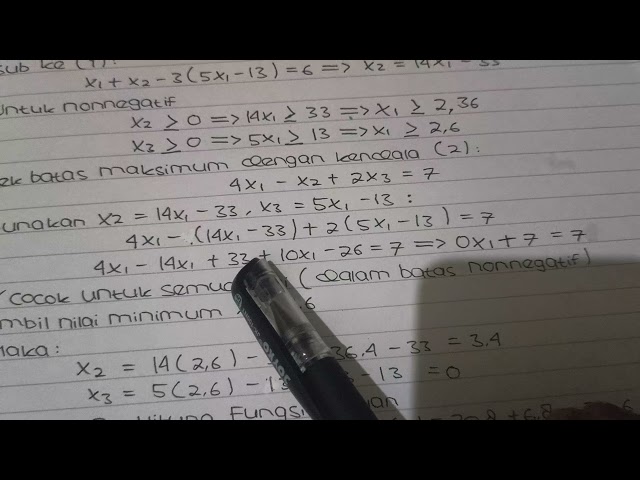 sub ke (1):
x₁ + x₂ - 3(5x₁ - 13) = 6 => x₂ = 14x₁ - 33
untuk nonnegatif
x₂ ≥ 0 => 14x₁ ≥ 33 => x₁ ≥ 2,36
x₃ ≥ 0 => 5x₁ ≥ 13 => x₁ ≥ 2,6
ek batas maksimum dengan kendala (2):
4x₁ - x₂ + 2x₃ = 7
unakan x₂ = 14x₁ - 33, x₃ = 5x₁ - 13 :
4x₁ - (14x₁ - 33) + 2(5x₁ - 13) = 7
4x₁ - 14x₁ + 33 + 10x₁ - 26 = 7 => 0x₁ + 7 = 7
cocok untuk semua (dalam batas nonnegatif)
mbil nilai minimum 6
Maka:
x₂ = 14(2,6) - 36,4 - 33 = 3,4
x₃ = 5(2,6) - 13 - 13 = 0
Fungsi
+ 6,8